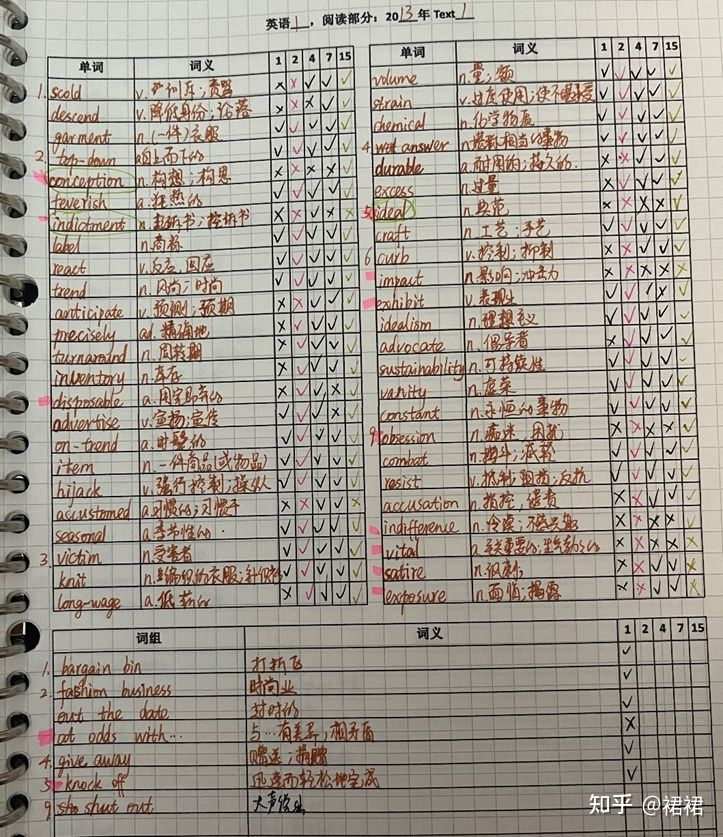 英语1，阅读部分：2013年 Text 1
单词 词义 1 2 4 7 15
1. scold v.
descend v.降低身份；
garment n.(一件)衣服
2. top-down a自上而下的
conception n.构想；构思
feverish a.狂热的
indictment n.起诉书；控诉书
label n.商标
react v.反应,回应
trend n.风尚；时尚
anticipate v.预测；预期
precisely ad.精确地
turnaround n.周转期
inventory n.库存
disposable a.用完即弃的
advertise v.宣扬；宣传
on-trend a.时髦的
item n.一件商品(或物品)
hijack v.强行控制；操纵
accustomed a.习惯的；习惯于
seasonal a.季节性的
3. victim n.受害者
knit n.编织的衣服；针织衫
low-wage a.低薪的
单词 词义 1 2 4 7 15
volume n.量；额
strain v.过度使用；使不堪承受
chemical n.化学物质
4. answer n.相当的事物
durable a.耐用的；持久的.
excess n.过量
5. ideal n.典范
craft n.工艺；手艺
6. curb v.控制；抑制
impact n.影响；冲击力
exhibit v.表现出
idealism n.理想主义
advocate n.倡导者
sustainability n.可持续性
vanity n.虚荣
constant n.永恒的事物
9. obsession n.痴迷,困扰
combat n.
resist v.抵制；阻挠；反抗
accusation n.指控,谴责
indifference n.冷漠；不感兴趣
vital a.至关重要的；生气勃勃的
satire n.讽刺
exposure n.面临；揭露
词组 词义 1 2 4 7 15
1. bargain bin 打折区
2. fashion business 时尚业
out the date 过时的
at odds with… 与…有差异；相矛盾
4. give away 赠送；捐赠
5. knock off 迅速而轻松地完成
9. shut out 大声
知乎 @裙裙